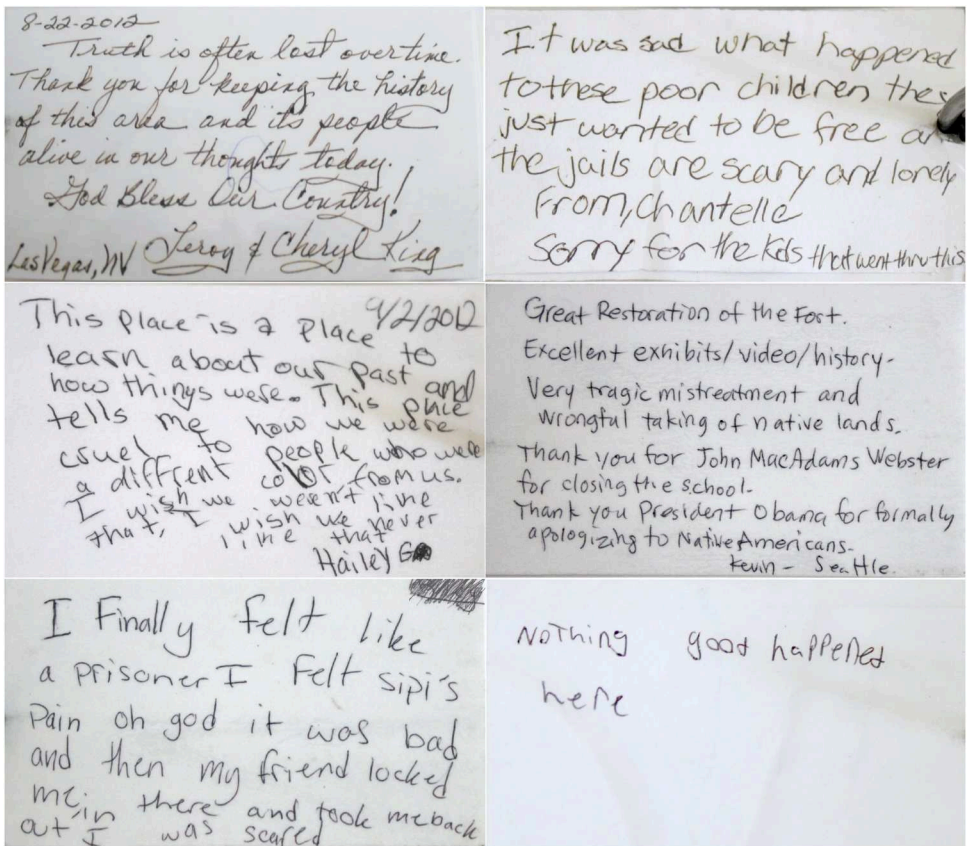 8-22-2012
Truth is often lost overtime.
Thank you for keeping the history
of this area and its people
alive in our thoughts today.
God Bless Our Country!
Las Vegas, NV Leroy & Cheryl King
It was sad what happened
to these poor children they
just wanted to be free an
the jails are scary and lonely
From, Chantelle
Sorry for the kids that went thru this
9/2/2012
This place is a place to
learn about our past and
how things were. This place
tells me how we were
cruel to people who were
a diffrent color from us.
I wish we weren't like
that, I wish we never
like that
Hailey G
Great Restoration of the Fort.
Excellent exhibits/video/history-
Very tragic mistreatment and
wrongful taking of native lands.
Thank you for John MacAdams Webster
for closing the school.
Thank you President Obama for formally
apologizing to Native Americans-
Kevin - Seattle.
I Finally felt like
a prisoner I felt sipi's
Pain oh god it was bad
and then my friend locked
me in there and took me back
out I was scared
Nothing good happened
here